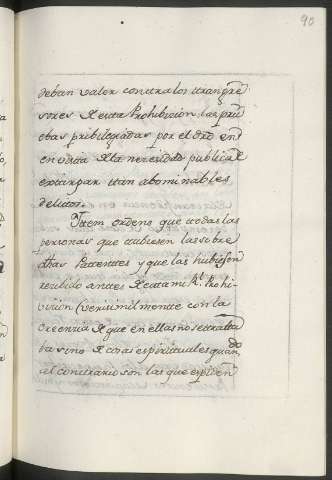 90
deban valer contra los trangre
sores de esta Prohibicion, las pru
ebas pribilegiadas por el dro en
en vista de la necesidad publica de
extirpar tan abominables
delitos.
Ittem ordeno que todas las
personas que tubiesen las sobre
dhas Patentes y que las hubiesen
recibido antes de esta mi Rl. Prohi
vicion (verisimilmente con la
creencia de que en ellas no se trata
ba sino de cosas espirituales quando
al contrario son las que expiden